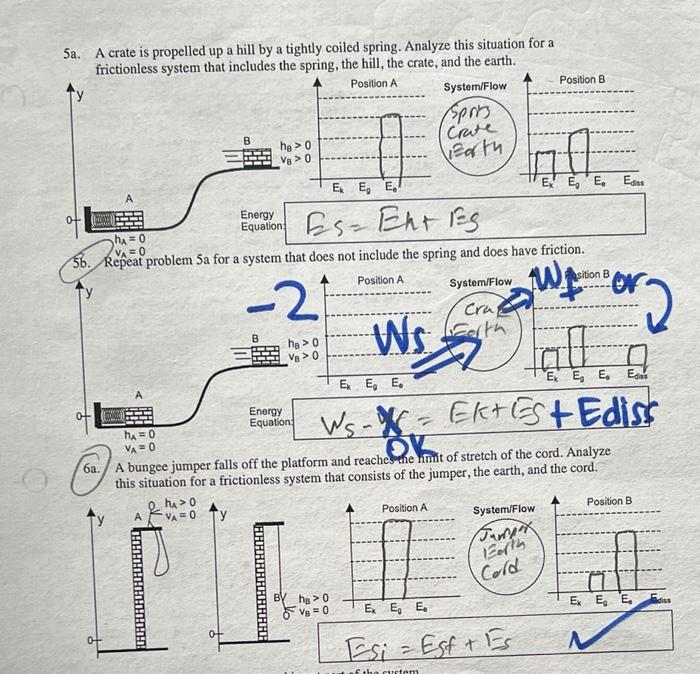 5a. A crate is propelled up a hill by a tightly coiled spring. Analyze this situation for a
frictionless system that includes the spring, the hill, the crate, and the earth.
Position A System/Flow Position B
y
B
hB > 0
vB > 0
Crate
Earth
Ek Eg Ee
Ek Eg Ee Ediss
A
0
hA = 0
vA = 0
Energy
Equation:
Es = Ek + Eg
5b. Repeat problem 5a for a system that does not include the spring and does have friction.
Position A System/Flow Position B
y
-2
Wf or
Ws
Earth
B
hB > 0
vB > 0
Ek Eg Ee
Ek Eg Ee Ediss
A
0
hA = 0
vA = 0
Energy
Equation:
Ws - Wf = Ek + Eg + Ediss
OK
6a. A bungee jumper falls off the platform and reaches the limit of stretch of the cord. Analyze
this situation for a frictionless system that consists of the jumper, the earth, and the cord.
Position A System/Flow Position B
y A hA > 0
vA = 0
y
Jumper
Earth
Cord
B hB > 0
vB = 0
Ek Eg Ee
Ek Eg Ee Ediss
0
0
Egi = Egf + Es
of the system